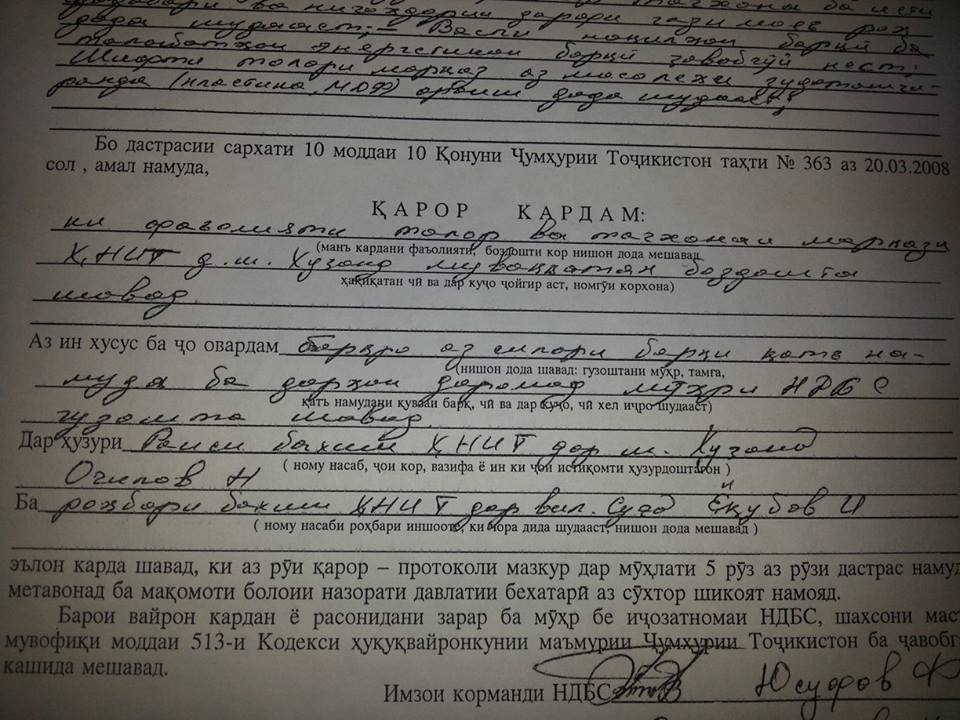 дода шудааст; – Васли ноқилҳои барқӣ ба
талаботҳои энергетикии барқӣ ҷавобгӯй нест;
Шифти толори марказ аз масолеҳи
(пластика, МДФ) ороиш дода шудааст;
Бо дастрасии сархати 10 моддаи 10 Қонуни Ҷумҳурии Тоҷикистон таҳти № 363 аз 20.03.2008
сол , амал намуда,
ҚАРОР КАРДАМ:
ки фаъолияти толор ва таҷхонаи марказии
(манъ кардани фаъолияти, боздошти кор нишон дода мешавад
ҲНИТ д.ш. Хуҷанд муваққатан боздошта
ҳақиқатан чӣ ва дар куҷо ҷойгир аст, номгӯи корхона)
шавад.
Аз ин хусус ба ҷо овардам барқро аз сипари барқи қатъ на-
(нишон дода шавад: гузоштани мӯҳр, тамға,
муда ба дарҳои даромад мӯҳри НДБС
қатъ намудани қувваи барқ, чӣ ва дар куҷо, чӣ хел иҷро шудааст)
гузошта шавад.
Дар ҳузури Раиси бахши ҲНИТ дар ш. Хуҷанд
( ному насаб, ҷои кор, вазифа ё ин ки ҷои истиқомти ҳузурдоштагон )
Очилов Н
Ба роҳбари бахши ҲНИТ дар вил. Суғд Ёқубов И
( ному насаби роҳбари иншоотӣ, ки чора дида шудааст, нишон дода мешавад )
эълон карда шавад, ки аз рӯи қарор – протоколи мазкур дар мӯҳлати 5 рӯз аз рӯзи дастрас намуд
метавонад ба мақомоти болоии назорати давлатии бехатарӣ аз сӯхтор шикоят намояд.
Барои вайрон кардан ё расонидани зарар ба мӯҳр бе иҷозатномаи НДБС, шахсони мас
мувофиқи моддаи 513-и Кодекси ҳуқуқвайронкунии маъмурии Ҷумҳурии Тоҷикистон ба ҷавобг
кашида мешавад.
Имзои корманди НДБС Юсуфов Ф